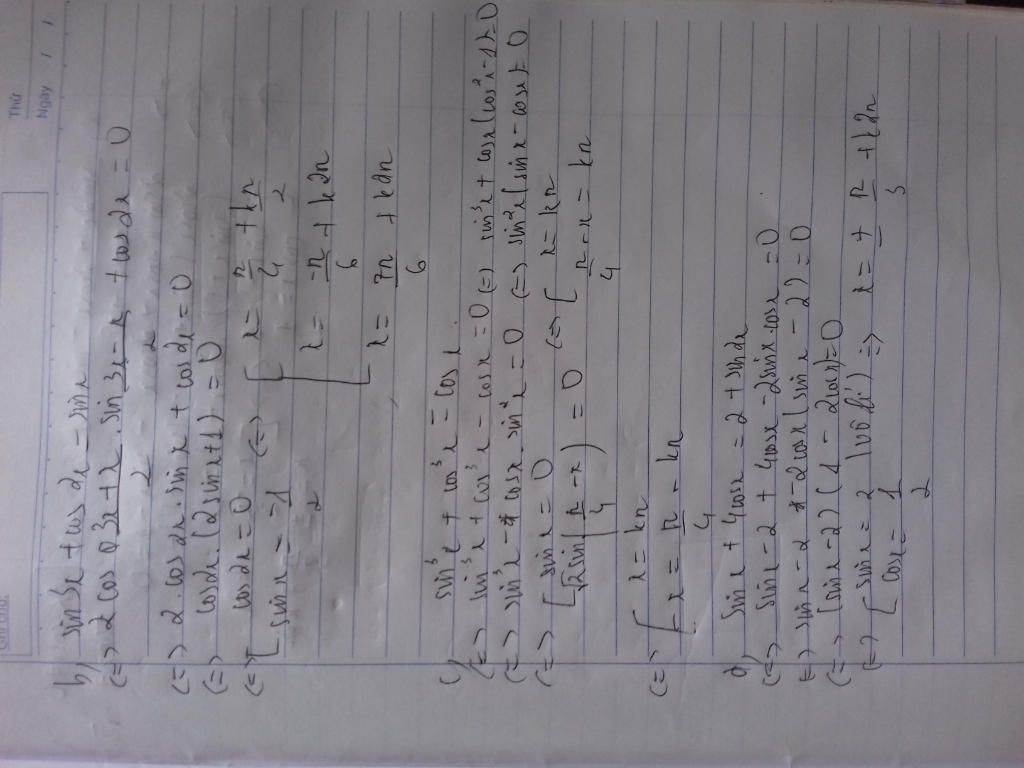 Thứ
Ngày / /
b) sin3x + cos2x - sinx
(=> 2 cos 3x+x/2 . sin 3x-x/2 + cos2x = 0
(=> 2.cos2x.sinx + cos2x = 0
(=> cos2x.(2sinx+1) = 0
(=> [ cos2x = 0 (=> [ x = π/4 + kπ/2
sinx = -1/2 x = -π/6 + k2π
x = 7π/6 + k2π
c) sin³x + cos³x = cosx
(=> sin³x + cos³x - cosx = 0 (=> sin³x + cosx(cos²x-1) = 0
(=> sin³x - cosx sin²x = 0 (=> sin²x(sinx - cosx) = 0
(=> [ sinx = 0 (=> [ x = kπ
√2sin(π/4 - x) = 0 π/4 - x = kπ
(=> [ x = kπ
x = π/4 - kπ
d) sinx + 4cosx = 2 + sin2x
(=> sinx - 2 + 4cosx - 2sinx.cosx = 0
(=> sinx - 2 - 2cosx(sinx - 2) = 0
(=> (sinx - 2)(1 - 2cosx) = 0
(=> [ sinx = 2 (vô lí) => x = ± π/3 + k2π
cosx = 1/2